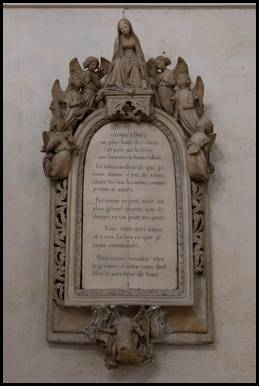 GLOIRE A DIEU
au plus haut des cieux
et paix sur la terre
aux hommes de bonne volonté
Le commandement que je
vous donne c'est de vous
aimer les uns les autres comme
je vous ai aimés
Personne ne peut avoir un
plus grand amour que de
donner sa vie pour ses amis
Vous êtes mes amis
si vous faites ce que je
vous commande
Quiconque voudra être
le premier d'entre vous doit
être le serviteur de tous